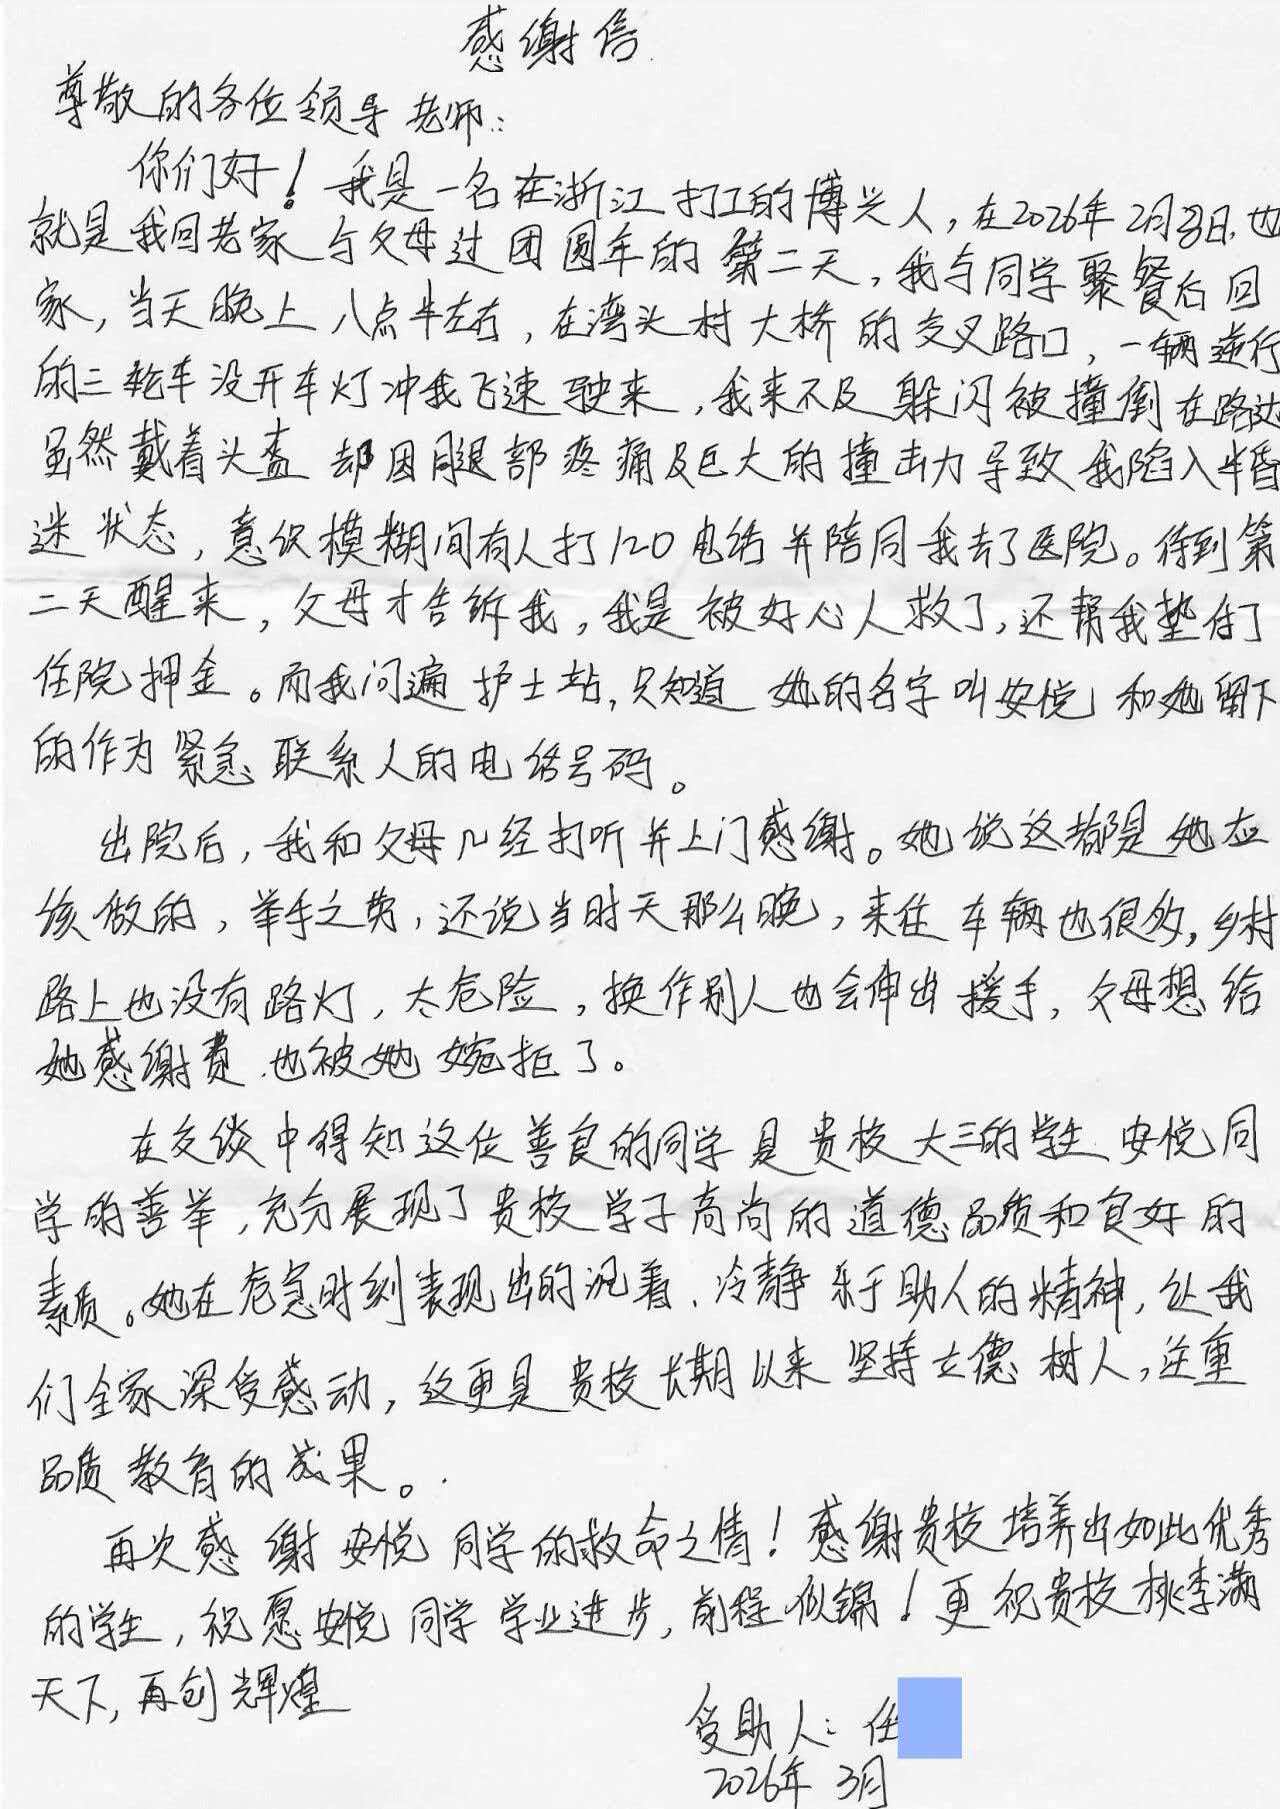 感谢信
尊敬的各位领导老师:
你们好！我是一名在浙江打工的博兴人，在2026年2月日,也
就是我回老家与父母过团圆年的第二天，我与同学聚餐后回
家，当天晚上八点半左右，在湾头村大桥的交叉路口，一辆逆行
的三轮车没开车灯冲我飞速驶来，我来不及躲闪被撞倒在路边
虽然戴着头盔却因腿部疼痛及巨大的撞击力导致我陷入半昏
迷状态，意识模糊间有人打120电话并陪同我去了医院。待到第
二天醒来，父母才告诉我，我是被好心人救了，还帮我垫付了
住院押金。而我问遍护士站，只知道她的名字叫安悦和她留下
的作为紧急联系人的电话号码。
出院后，我和父母几经打听并上门感谢。她说这都是她应
该做的，举手之劳，还说当时天那么晚，来往车辆也很多，乡村
路上也没有路灯，太危险，换作别人也会伸出援手，父母想给
她感谢费、也被她婉拒了。
在交谈中得知这位善良的同学是贵校大三的学生、安悦同
学的善举，充分展现了贵校学子高尚的道德品质和良好的
素质。她在危急时刻表现出的沉着、冷静乐于助人的精神，让我
们全家深受感动，这更是贵校长期以来坚持立德树人，注重
品质教育的成果。
再次感谢安悦同学的救命之情！感谢贵校培养出如此优秀
的学生，祝愿安悦同学学业进步，前程似锦！更祝贵校桃李满
天下，再创辉煌
受助人：任
2026年3月